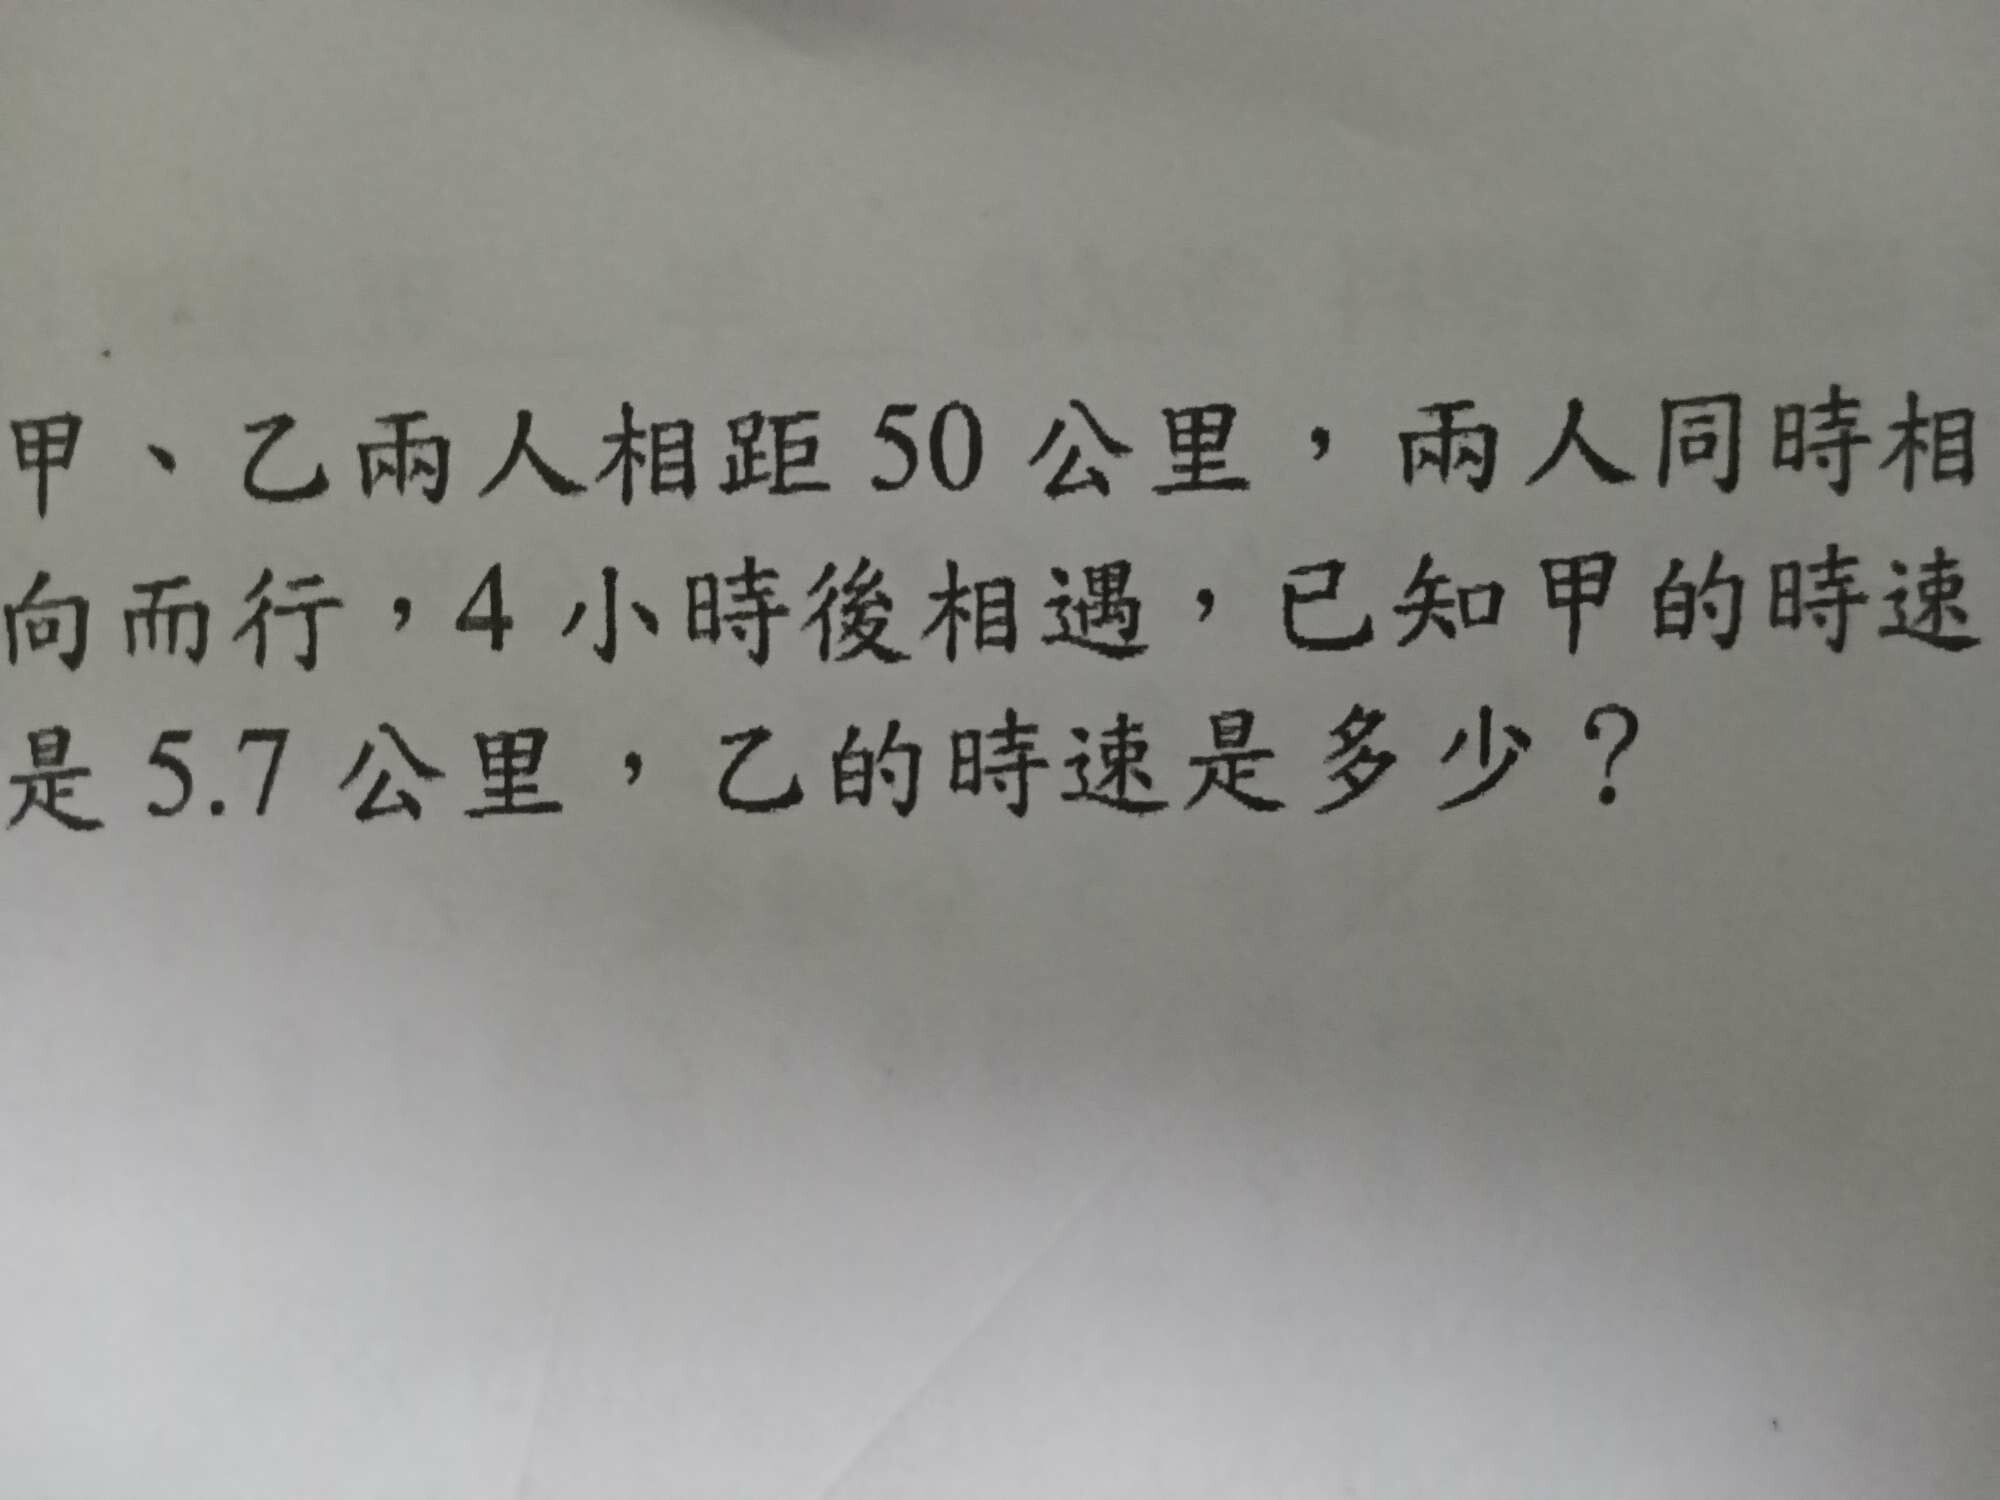 甲、乙兩人相距 50 公里，兩人同時相
向而行，4 小時後相遇，已知甲的時速
是 5.7 公里，乙的時速是多少？